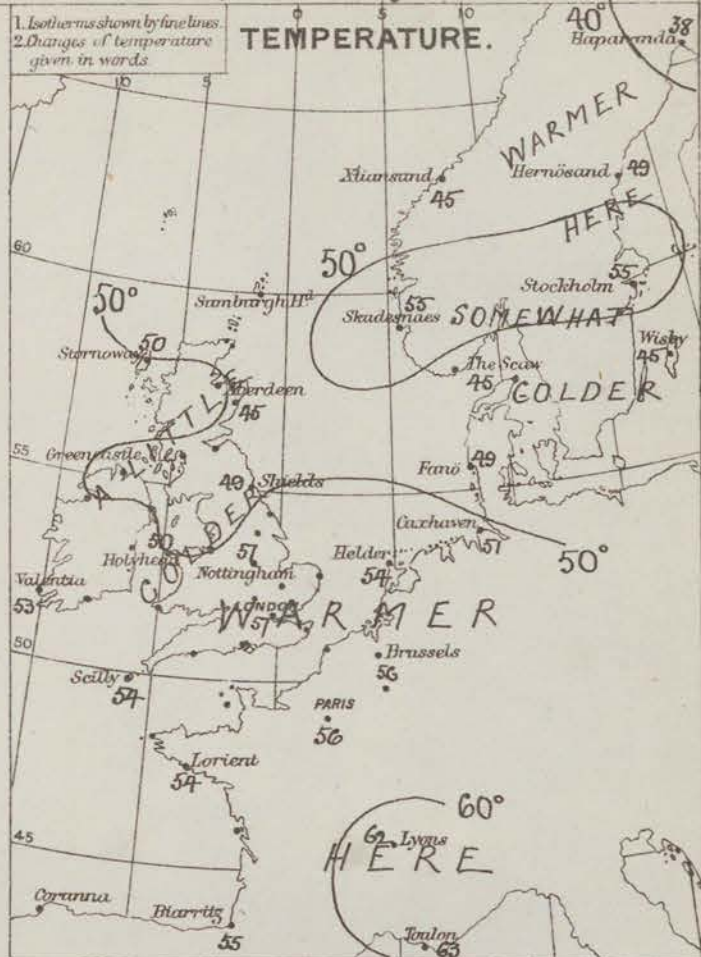 1. Isotherms shown by fine lines.
2. Changes of temperature
given in words
TEMPERATURE.
0
5
10
5
40°
38
Haparanda
WARMER
Xtiansand
45
Hernösand
49
HERE
60
50°
50°
Sumburgh Hd
Stockholm
55
Skadesnaes
55
SOMEWHAT
Stornoway
50
Wisby
45
The Scaw
45
COLDER
Aberdeen
45
A LITTLE
55
Greencastle
Shields
49
Fanö
49
COLDER
Cuxhaven
51
50°
Holyhead
50
Nottingham
57
Helder
54
Valentia
53
LONDON
57
WARMER
50
Brussels
56
Scilly
54
PARIS
56
Lorient
54
60°
45
62
Lyons
HERE
Corunna
Biarritz
55
Toulon
63